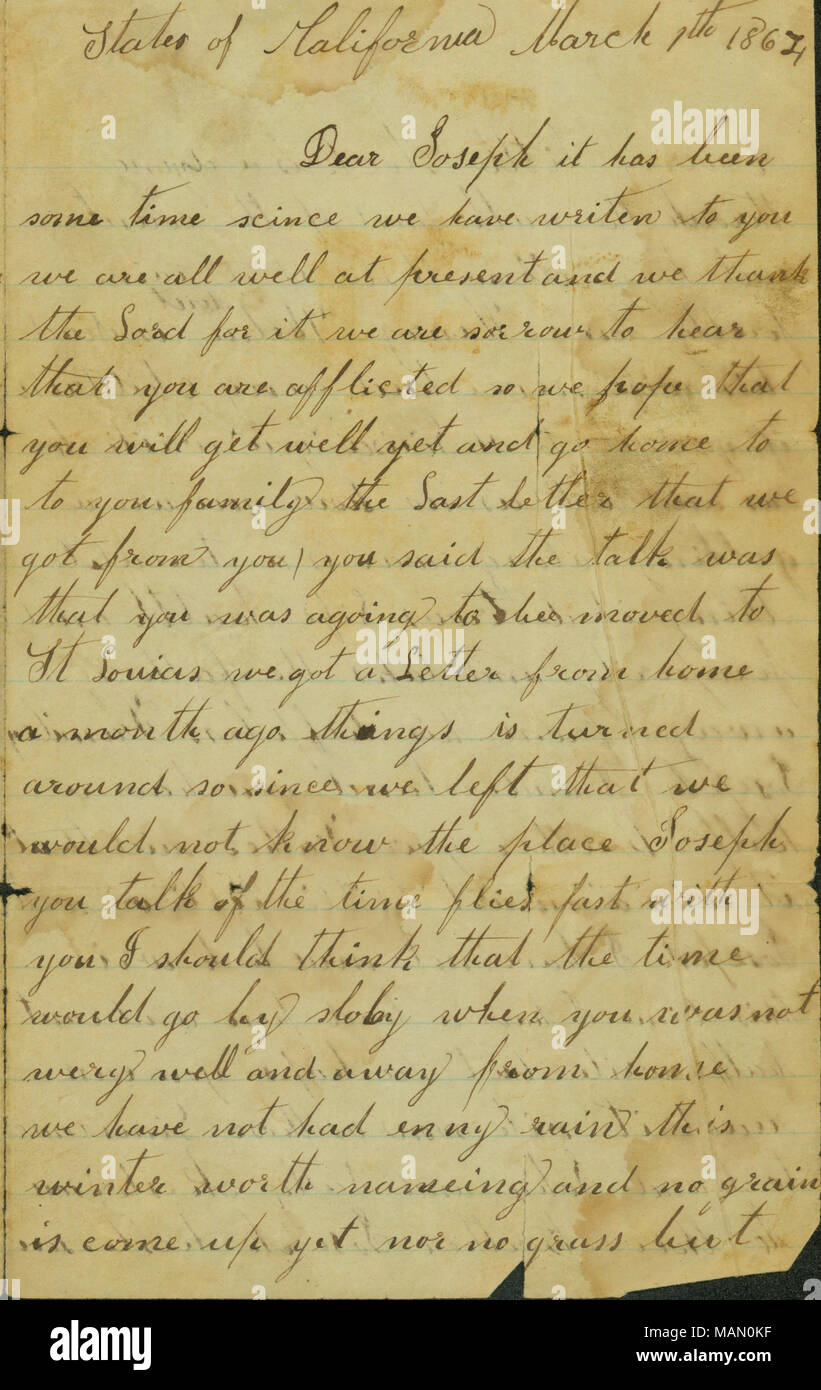 State of California March 1th 1864
Dear Joseph it has been
some time scince we have writen to you
we are all well at present and we thank
the Lord for it we are sorrow to hear
that you are afflicted so we hope that
you will get well yet and go home to
to you family the Last Letter that we
got from you you said the talk was
that you was agoing to be moved to
St Louias we got a Letter from home
a month ago things is turned
around so since we left that we
would not know the place Joseph
you talk of the time flies fast with
you I should think that the time
would go by sloly when you was not
very well and away from home
we have not had enny rain this
winter worth nameing and no grain
is come up yet nor no grass but
a alamy
alamy stock photo
MAN0KF
www.alamy.com